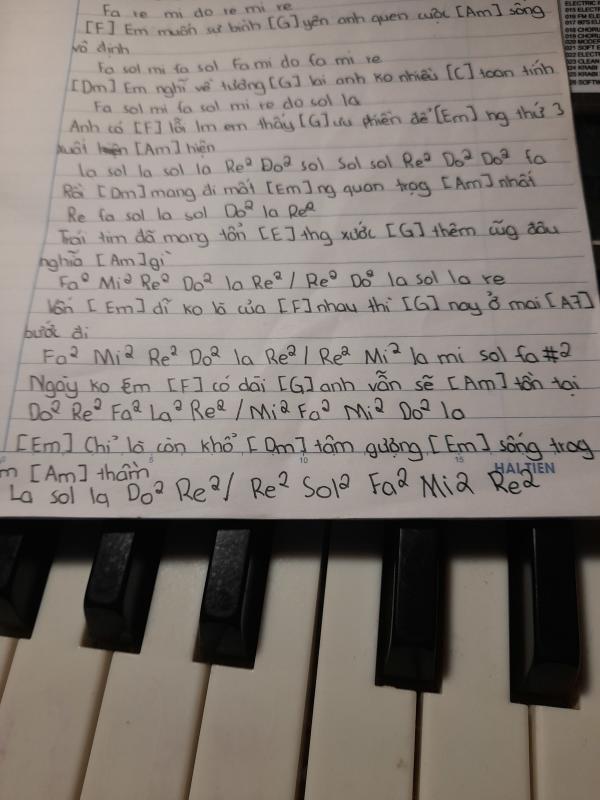 Fa re mi do re mi re
[F] Em muốn sự bình [G] yên anh quen cuộc [Am] sống
vô định
Fa sol mi fa sol Fa mi do fa mi re
[Dm] Em nghĩ về tương [G] lai anh ko nhiều [C] toan tính
Fa sol mi fa sol mi re do sol la
Anh có [F] lỗi lm em thấy [G] ưu phiền để [Em] ng thứ 3
xuất [Am] hiện
la sol la sol la Re² Do² sol Sol sol Re² Do² Do² fa
Rồi [Dm] mang đi mất [Em] ng quan trọg [Am] nhất
Re fa sol la sol Do² la Re²
Trái tim đã mang tổn [E] thg xước [G] thêm cũg đâu
nghĩa [Am] gì
Fa² Mi² Re² Do² la Re² / Re² Do² la sol la re
Vốn [Em] dĩ ko là của [F] nhau thì [G] nay ở mai [A7]
bước đi
Fa² Mi² Re² Do² la Re² / Re² Mi² la mi sol fa#2
Ngày ko em [F] có dài [G] anh vẫn sẽ [Am] tồn tại
Do² Re² Fa² La² Re² / Mi² Fa² Mi² Do² la
[Em] Chỉ là còn khổ [Dm] tâm gượng [Em] sống trog
m [Am] thầm
5 10 15 HẢI TIẾN
La sol la Do² Re² / Re² Sol² Fa² Mi² Re²